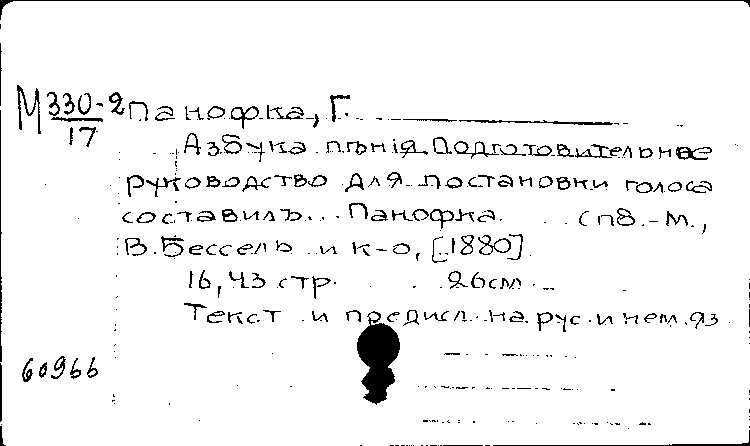 М 330-2
17
Панофка, Г.
Азбука пѣнія. Подготовительное
руководство для постановки голоса
составилъ... Панофка. Спб.-М.,
В. Бессель и К-о, [1880]
16, 43 стр. 26см.
Текст и предисл. на рус. и нем. яз
60966